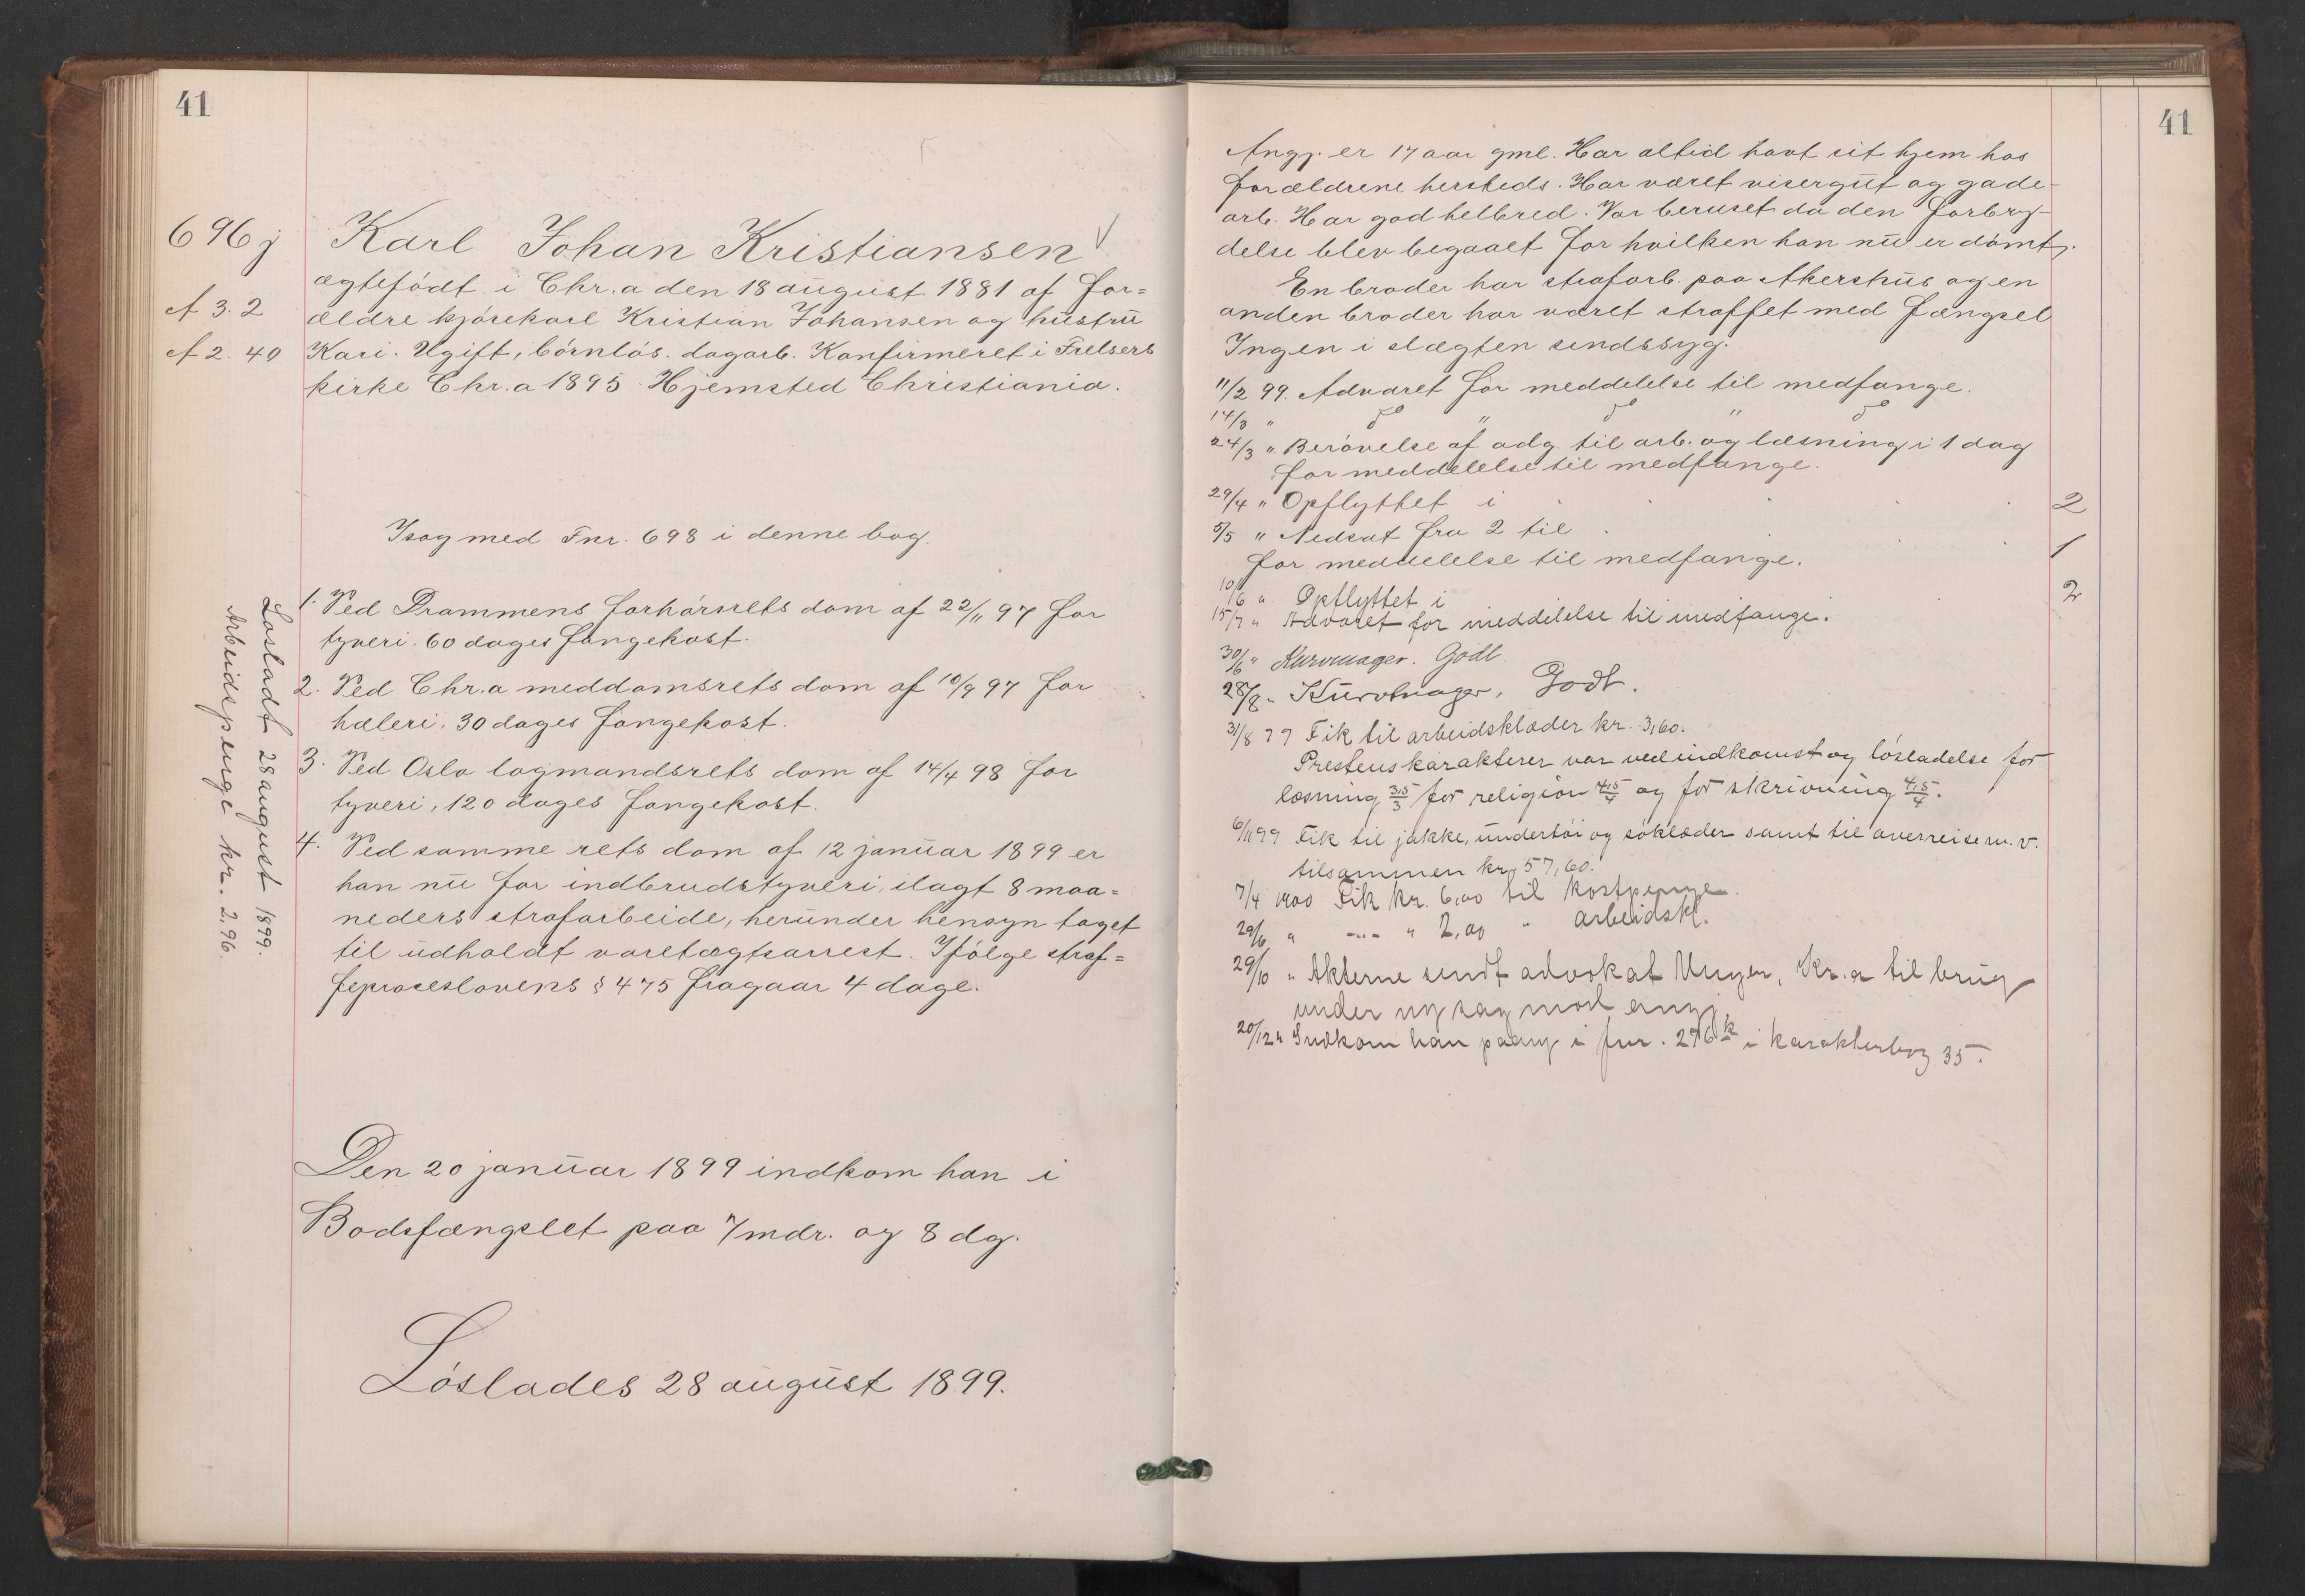 41
696j
Karl Johan Kristiansen
ægtefødt i Chr.a den 18 august 1881 af for=
A 3. 2
ældre kjørekarl Kristian Johansen og hustru
A 2. 40
Kari. Ugift, børnløs. dagarb. Konfirmeret i Frelsers
kirke Chr.a 1895. Hjemsted Christiania.
I sag med Fnr. 698 i denne bog.
1. Ved Drammens forhørsrets dom af 22/11 97 for
tyveri. 60 dages fangekost.
2. Ved Chr.a meddomsrets dom af 10/9 97 for
hæleri. 30 dages fangekost.
3. Ved Oslo lagmandsrets dom af 14/4 98 for
tyveri, 120 dages fangekost.
4. Ved samme rets dom af 12 januar 1899 er
han nu for indbrudstyveri, ilagt 8 maa=
neders strafarbeide, herunder hensyn taget
til udholdt varetægtsarrest. Ifølge straf=
feproceslovens § 475 fragaar 4 dage.
Løsladt 28 august 1899.
Arbeidspenge kr. 2,96.
Den 20 januar 1899 indkom han i
Bodsfængslet paa 7 mdr. og 8 dg.
Løslades 28 august 1899.
41
Angj. er 17 aar gml. Har altid havt sit hjem hos
forældrene hersteds. Har været visergut og gade-
arb. Har god helbred. Var beruset da den forbry-
delse blev begaaet for hvilken han nu er dømt.
En broder har strafarb. paa Akershus og en
anden broder har været straffet med fængsel
Ingen i slægten sindssyg.
11/2 99. Advaret for meddelelse til medfange.
14/3 " do " do " do
24/3 " Berøvelse af adg. til arb. og læsning i 1 dag
for meddelelse til medfange.
29/4 " Opflyttet i 2
5/5 " Nedsat fra 2 til 1
for meddelelse til medfange.
10/6 " Opflyttet i 2
15/7 " Advaret for meddelelse til medfange.
30/6 " Kurvmager. Godt.
28/8 " Kurvmager, Godt.
31/8 99 Fik til arbeidsklæder kr. 3,60.
Prestens karakterer var ved indkomst og løsladelse for
læsning 3,5/3 for religion 4,5/4 og for skrivning 4,5/4.
6/11 99 Fik til jakke, undertøi og søklæder samt til avreise m.v.
tilsammen kr. 57,60.
7/4 1900 Fik kr. 6,00 til kostpenge.
29/6 " -"- " 2,00 " arbeidskl.
29/10 " Akterne sendt advokat Unger, Kr.a til brug
under ny sag mod angj.
20/12 " Indkom han paany i fnr. 276 k i karakterbog 35.